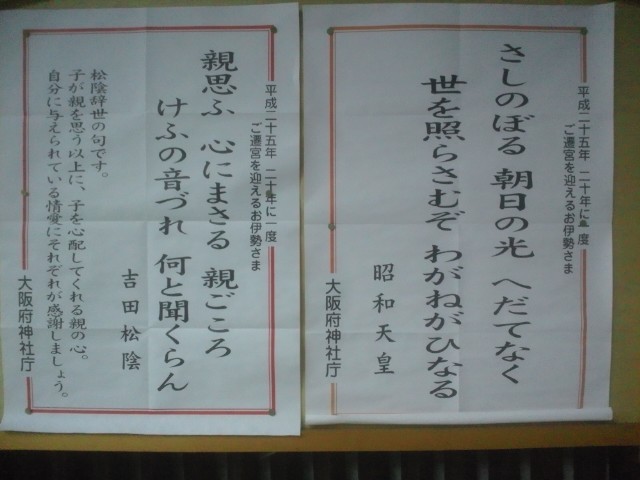 平成二十五年 二十年に一度
ご遷宮を迎えるお伊勢さま
さしのぼる 朝日の光 へだてなく
世を照らさむぞ わがねがひなる
昭和天皇
大阪府神社庁
平成二十五年 二十年に一度
ご遷宮を迎えるお伊勢さま
親思ふ 心にまさる 親ごころ
けふの音づれ 何と聞くらん
吉田松陰
松陰辞世の句です。
子が親を思う以上に、子を心配してくれる親の心。
自分に与えられている情愛にそれぞれが感謝しましょう。
大阪府神社庁